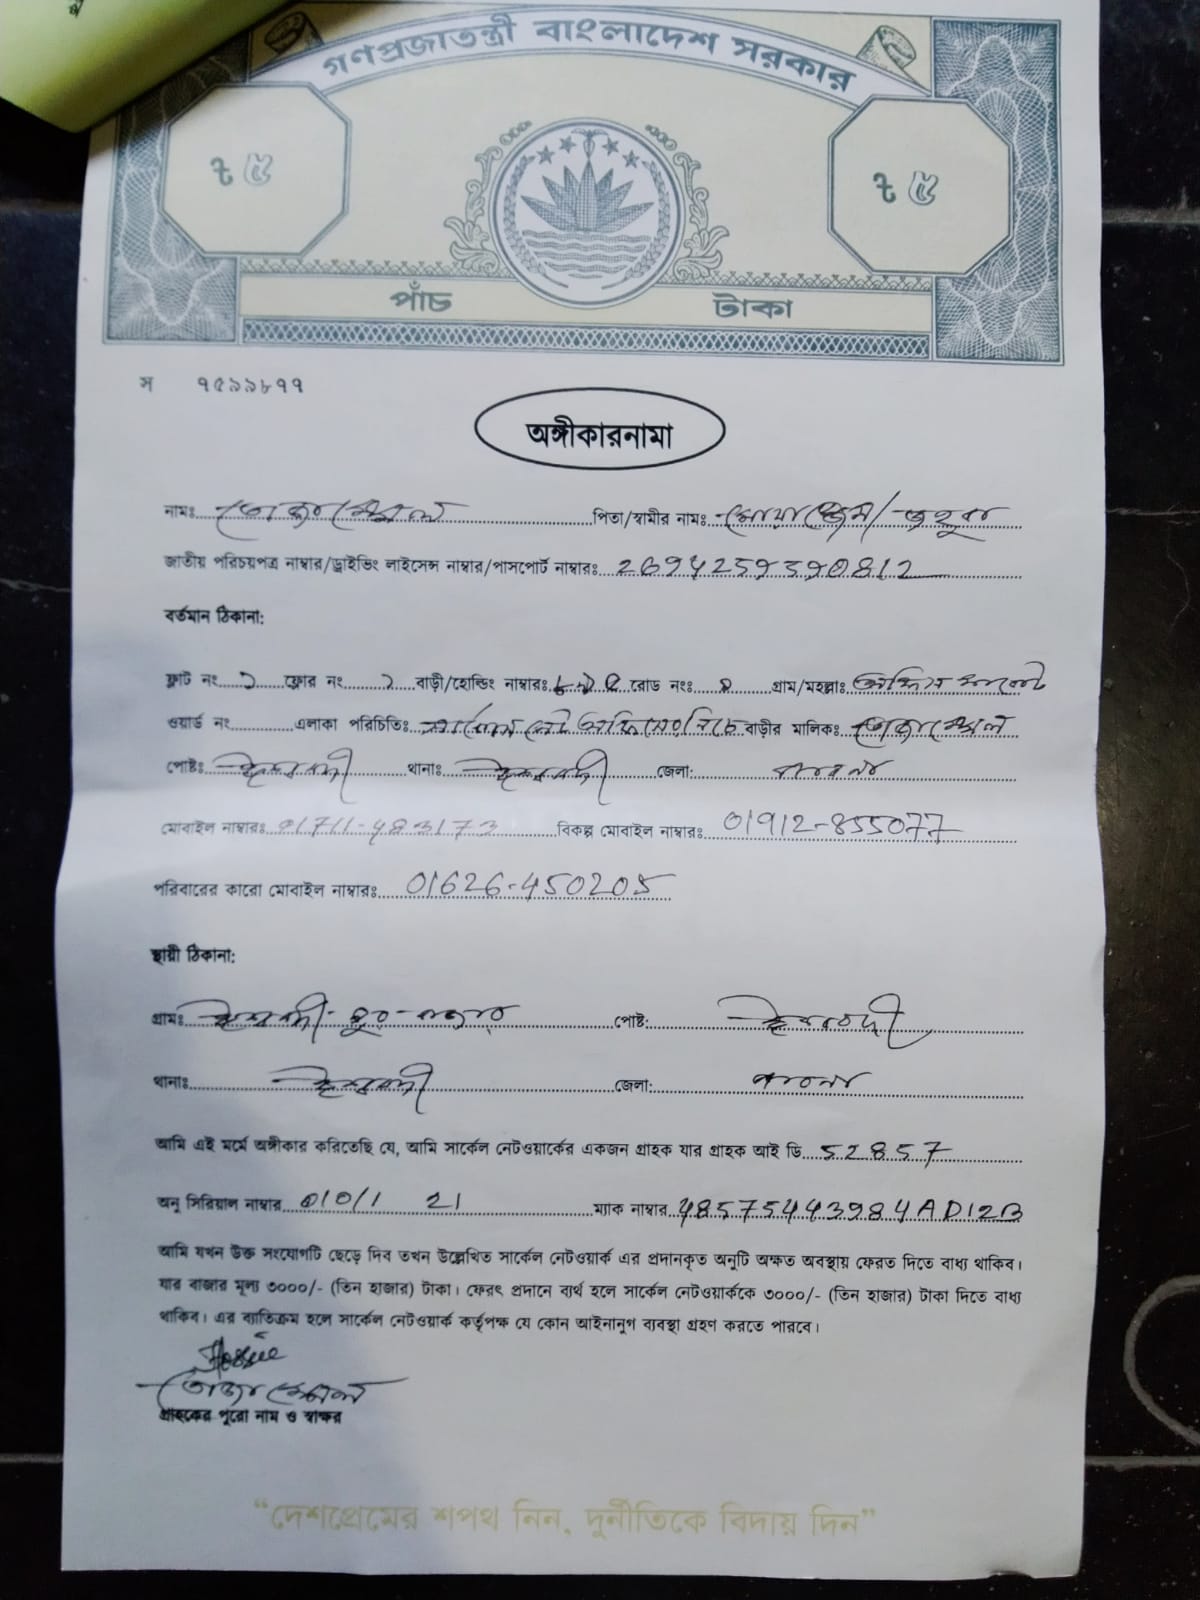 গণপ্রজাতন্ত্রী বাংলাদেশ সরকার
৳ ৫ ৳ ৫
পাঁচ টাকা
স ৭৫৯৯৮৭৭
অঙ্গীকারনামা
নামঃ তোফাজ্জেল পিতা/স্বামীর নামঃ
জাতীয় পরিচয়পত্র নাম্বার/ড্রাইভিং লাইসেন্স নাম্বার/পাসপোর্ট নাম্বারঃ
বর্তমান ঠিকানা:
ফ্লাট নং ফ্লোর নং বাড়ী/হোল্ডিং নাম্বারঃ রোড নংঃ গ্রাম/মহল্লাঃ
ওয়ার্ড নং এলাকা পরিচিতিঃ বাড়ীর মালিকঃ তোফাজ্জেল
পোষ্টঃ ঈশ্বরদী থানাঃ ঈশ্বরদী জেলা: পাবনা
মোবাইল নাম্বারঃ 01711-483173 বিকল্প মোবাইল নাম্বারঃ 01912-855077
পরিবারের কারো মোবাইল নাম্বারঃ 01626-450205
স্থায়ী ঠিকানা:
গ্রামঃ ঈশ্বরদী পোষ্ট: ঈশ্বরদী
থানাঃ ঈশ্বরদী জেলা: পাবনা
আমি এই মর্মে অঙ্গীকার করিতেছি যে, আমি সার্কেল নেটওয়ার্কের একজন গ্রাহক যার গ্রাহক আই ডি 52857
অনু সিরিয়াল নাম্বার 010/1 21 ম্যাক নাম্বার 48575443984AD12B
আমি যখন উক্ত সংযোগটি ছেড়ে দিব তখন উল্লেখিত সার্কেল নেটওয়ার্ক এর প্রদানকৃত অনুটি অক্ষত অবস্থায় ফেরত দিতে বাধ্য থাকিব।
যার বাজার মূল্য ৩০০০/- (তিন হাজার) টাকা। ফেরৎ প্রদানে ব্যর্থ হলে সার্কেল নেটওয়ার্ককে ৩০০০/- (তিন হাজার) টাকা দিতে বাধ্য
থাকিব। এর ব্যতিক্রম হলে সার্কেল নেটওয়ার্ক কর্তৃপক্ষ যে কোন আইনানুগ ব্যবস্থা গ্রহণ করতে পারবে।
তোফাজ্জেল
গ্রাহকের পুরো নাম ও স্বাক্ষর
“দেশপ্রেমের শপথ নিন, দুর্নীতিকে বিদায় দিন”